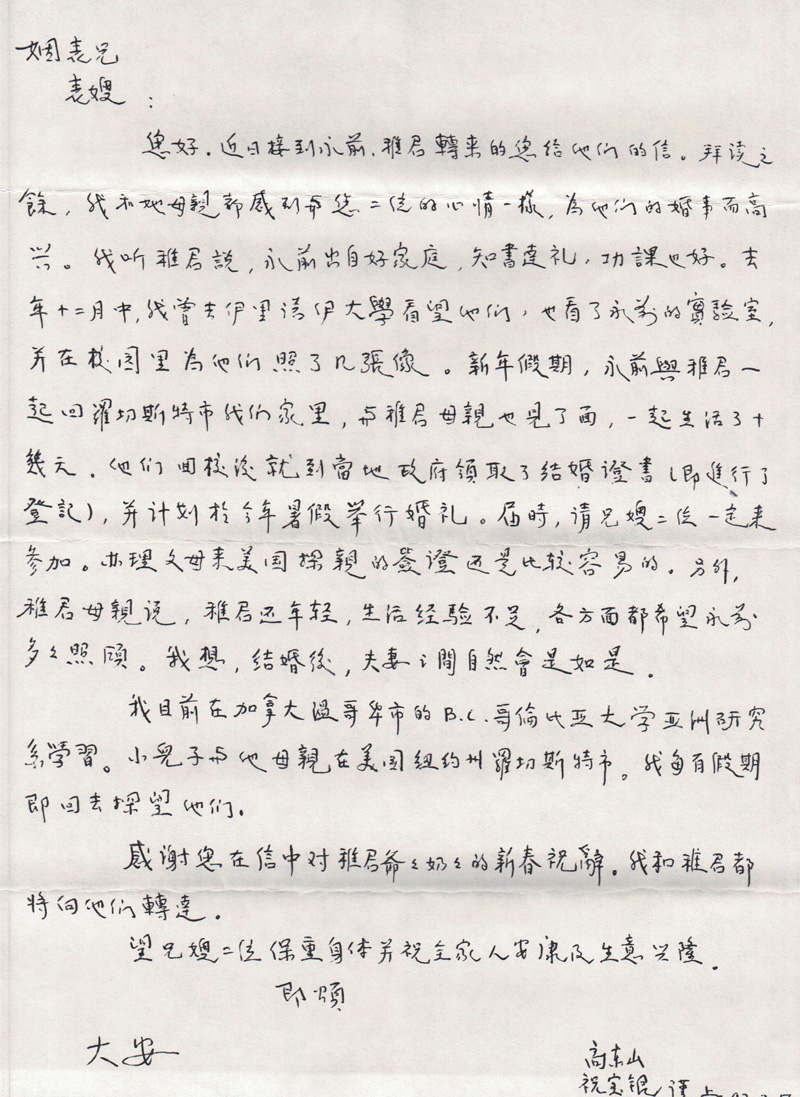 姻表兄
表嫂：
您好．近日接到永前、雅君轉来的您给他们的信。拜读之
餘，我和她母親都感到与您二位的心情一樣，為他们的婚事而高
兴。我听雅君説，永前出自好家庭，知書達礼，功課也好。去
年十二月中，我曾去伊里诺伊大學看望他们，也看了永前的實驗室，
并在校园里為他们照了几張像。新年假期，永前與雅君一
起回羅切斯特市我们家里，与雅君母親也見了面，一起生活了十
幾天．他们回校後就到當地政府領取了结婚證書（即進行了
登記），并计划於今年暑假举行婚礼。届時，请兄嫂二位一起来
参加。办理父母来美国探親的簽證还是比较容易的．另外，
雅君母親说，雅君还年轻，生活经验不足，各方面都希望永前
多々照顾。我想，结婚後，夫妻之間自然會是如是．
我目前在加拿大温哥华市的B.C.哥倫比亚大学亚洲研究
系學習。小兒子与他母親在美国纽约州羅切斯特市。我每有假期
即回去探望他们．
感谢您在信中对雅君爺々奶々的新春祝辭．我和雅君都
将向他们轉達．
望兄嫂二位保重身体并祝全家人安康及生意兴隆．
即頌
大安
高东山
祝宝锟 谨上